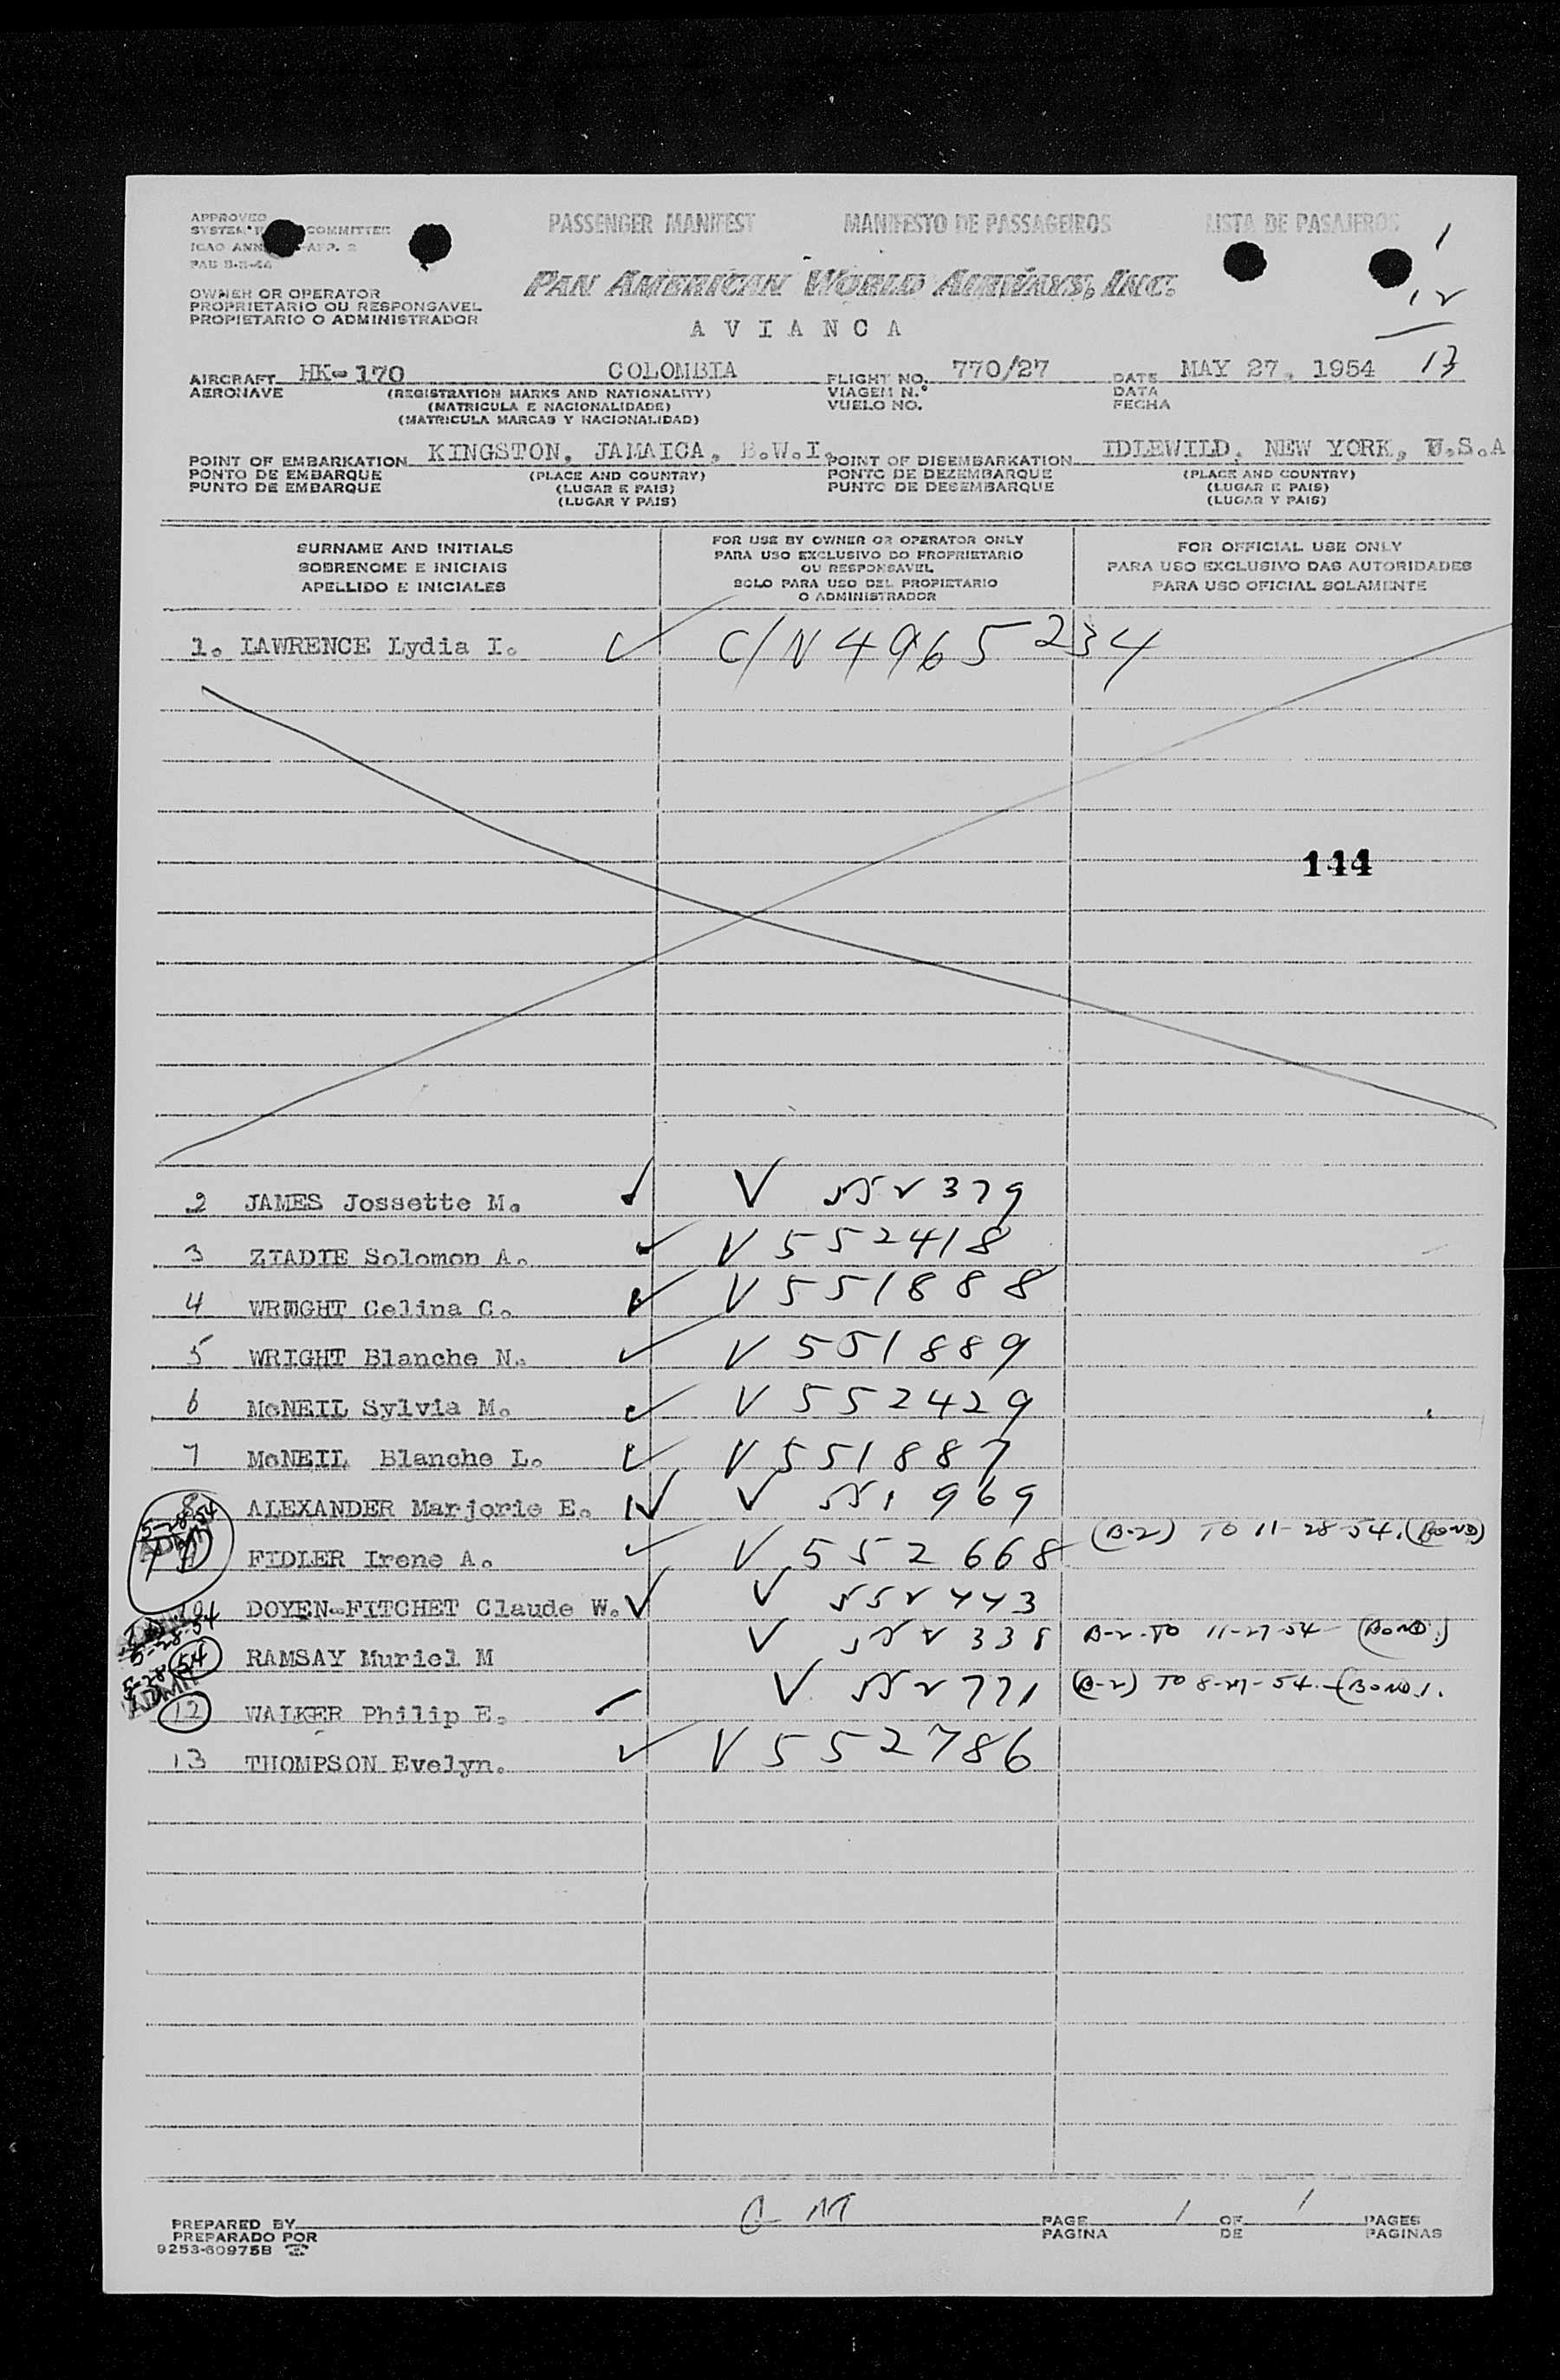 APPROVED
COMMITTEE
PASSENGER MANIFEST MANIFESTO DE PASSAGEIROS LISTA DE PASAJEROS
1
12
13
PAN AMERICAN WORLD AIRWAYS, INC.
OWNER OR OPERATOR
PROPRIETARIO OU RESPONSAVEL
PROPIETARIO O ADMINISTRADOR
AVIANCA
AIRCRAFT HK-170 COLOMBIA FLIGHT NO. 770/27 DATE MAY 27, 1954
AERONAVE (REGISTRATION MARKS AND NATIONALITY) VIAGEM N.º DATA
(MATRICULA E NACIONALIDADE) VUELO NO. FECHA
(MATRICULA MARCAS Y NACIONALIDAD)
POINT OF EMBARKATION KINGSTON, JAMAICA, B.W.I. POINT OF DISEMBARKATION IDLEWILD, NEW YORK, U.S.A
PONTO DE EMBARQUE (PLACE AND COUNTRY) PONTO DE DEZEMBARQUE (PLACE AND COUNTRY)
PUNTO DE EMBARQUE (LUGAR E PAIS) PUNTO DE DESEMBARQUE (LUGAR E PAIS)
(LUGAR Y PAIS) (LUGAR Y PAIS)
SURNAME AND INITIALS
SOBRENOME E INICIAIS
APELLIDO E INICIALES
FOR USE BY OWNER OR OPERATOR ONLY
PARA USO EXCLUSIVO DO PROPRIETARIO
OU RESPONSAVEL
SOLO PARA USO DEL PROPIETARIO
O ADMINISTRADOR
FOR OFFICIAL USE ONLY
PARA USO EXCLUSIVO DAS AUTORIDADES
PARA USO OFICIAL SOLAMENTE
1. LAWRENCE Lydia I. C/N 4965234
144
2 JAMES Jossette M. V 552379
3 ZIADIE Solomon A. V 552418
4 WRIGHT Celina C. V 551888
5 WRIGHT Blanche N. V 551889
6 McNEIL Sylvia M. V 552429
7 McNEIL Blanche L. V 551887
8 ALEXANDER Marjorie E. V 551969
9 FIDLER Irene A. V 552668 (B-2) TO 11-28-54. (BOND)
10 DOYEN-FITCHET Claude W. V 552443
RAMSAY Muriel M V 552338 B-2 TO 11-27-54 (BOND.)
12 WALKER Philip E. V 552771 (B-2) TO 8-27-54 (BOND).
13 THOMPSON Evelyn. V 552786
5-28-54
ADMIT
5-28-54
5-28-54
ADMIT
PREPARED BY PAGE 1 OF 1 PAGES
PREPARADO POR PAGINA DE PAGINAS
9253-60975B